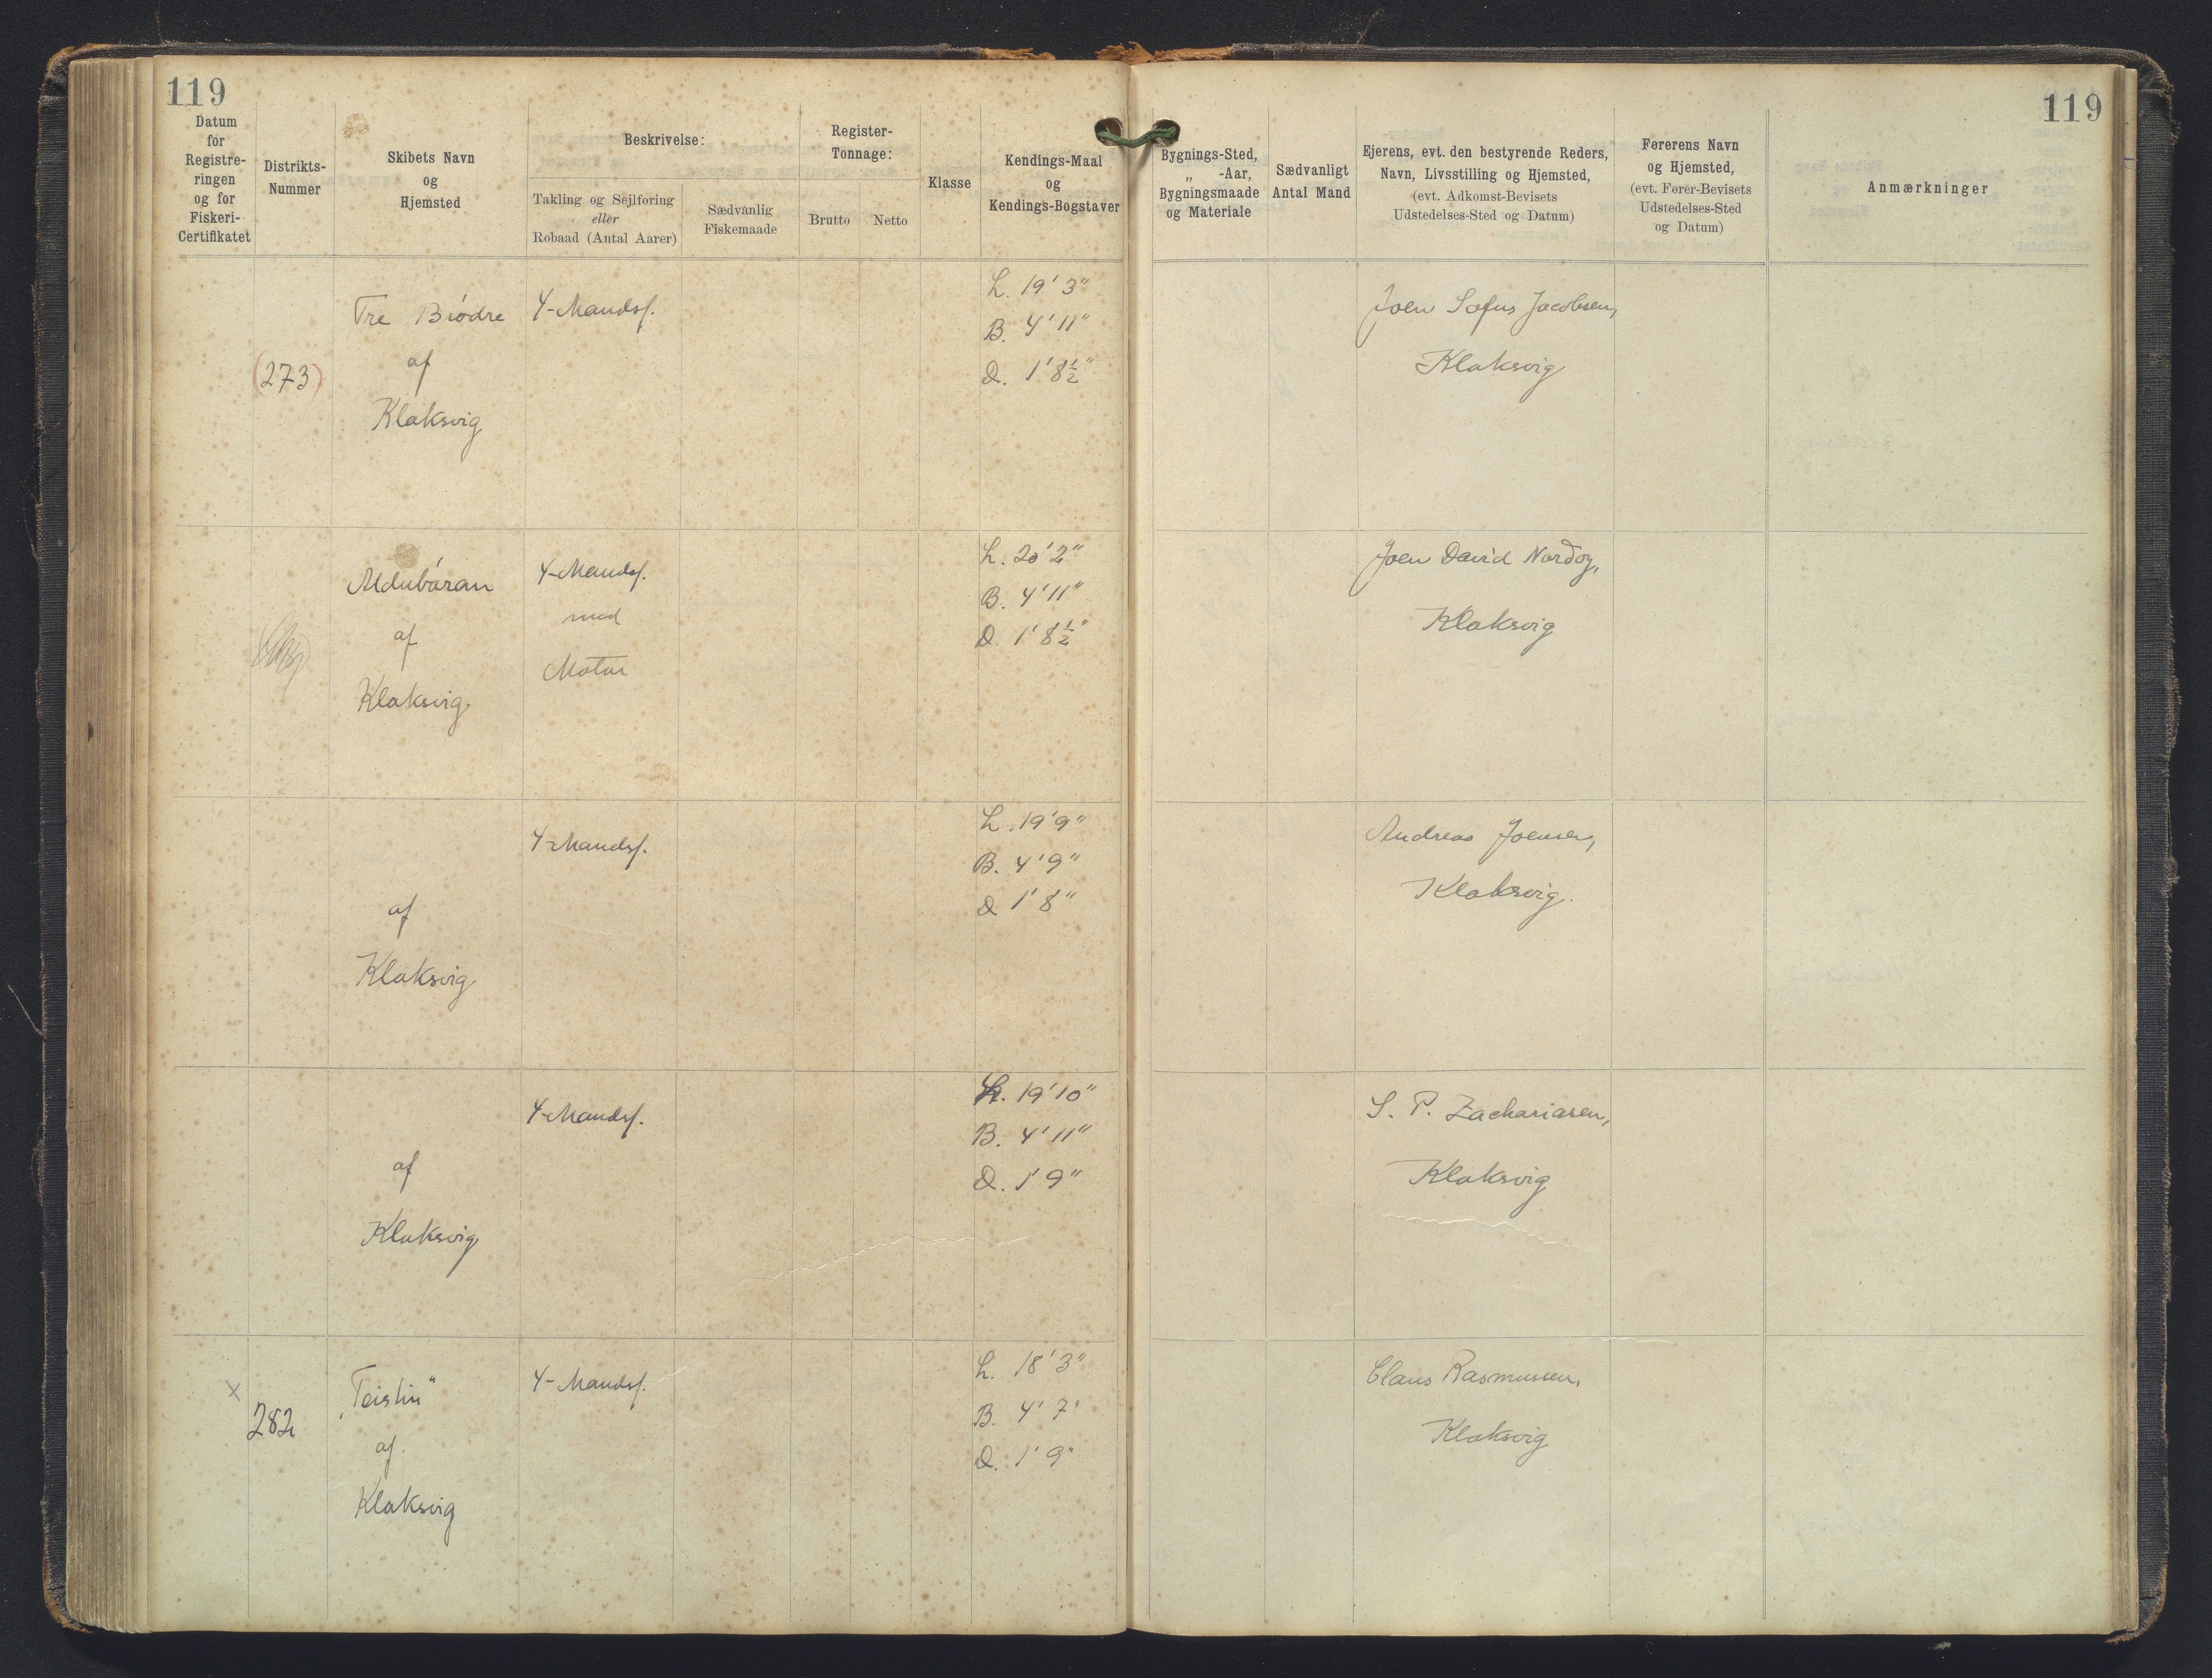 119
119
Datum
for
Registre-
ringen
og for
Fiskeri-
Certifikatet
Distrikts-
Nummer
Skibets Navn
og
Hjemsted
Beskrivelse:
Takling og Sejlføring
eller
Robaad (Antal Aarer)
Sædvanlig
Fiskemaade
Register-
Tonnage:
Brutto
Netto
Klasse
Kendings-Maal
og
Kendings-Bogstaver
Bygnings-Sted,
„ -Aar,
Bygningsmaade
og Materiale
Sædvanligt
Antal Mand
Ejerens, evt. den bestyrende Reders,
Navn, Livsstilling og Hjemsted,
(evt. Adkomst-Bevisets
Udstedelses-Sted og Datum)
Førerens Navn
og Hjemsted,
(evt. Fører-Bevisets
Udstedelses-Sted
og Datum)
Anmærkninger
(273)
Tre Brødre
af
Klaksvig
4-Mandsf.
L. 19' 3"
B. 4' 11"
D. 1' 8½"
Joen Sofus Jacobsen,
Klaksvig
Aldubáran
af
Klaksvig.
4-Mandsf.
med
Motor
L. 20' 2"
B. 4' 11"
D. 1' 8½"
Joen David Nordoy,
Klaksvig
af
Klaksvig
4-Mandsf.
L. 19' 9"
B. 4' 9"
D 1' 8"
Andreas Joensen,
Klaksvig.
af
Klaksvig
4-Mandsf.
L. 19' 10"
B. 4' 11"
D. 1' 9"
S. P. Zachariasen,
Klaksvig
x
282
„Teistin"
af
Klaksvig
4-Mandsf.
L. 18' 3"
B. 4' 7"
D. 1' 9"
Claus Rasmussen,
Klaksvig